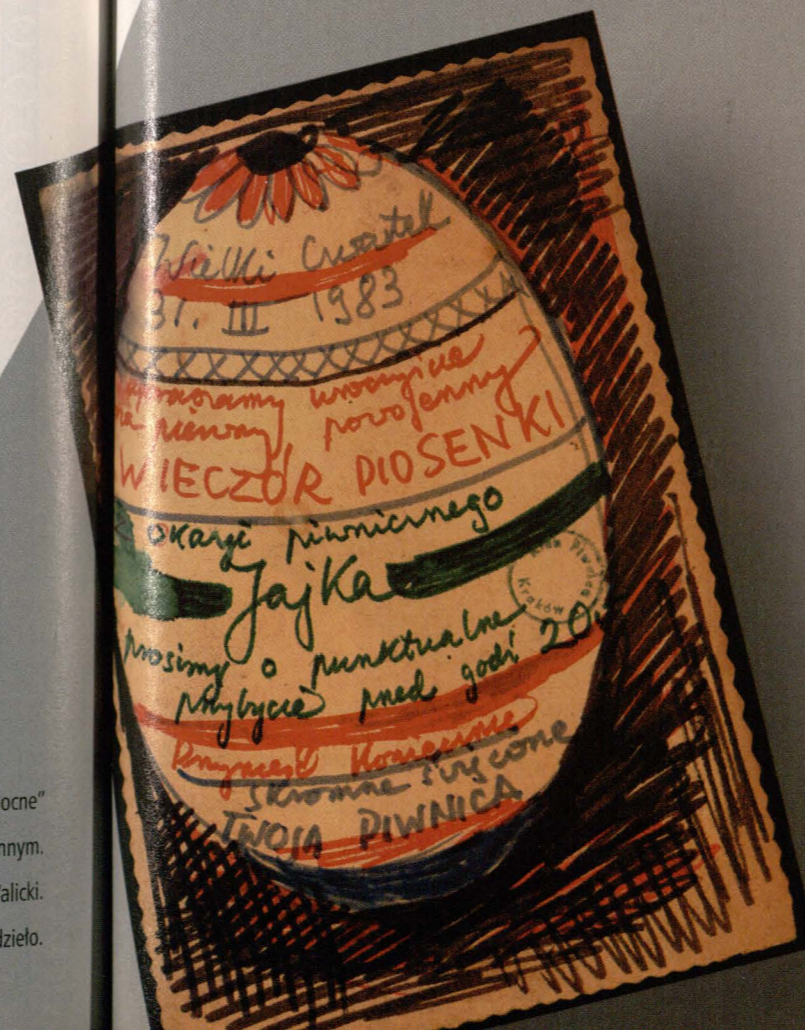 Wielki Czwartek
31. III 1983
zapraszamy uroczyście
na pierwszy, powojenny
WIECZÓR PIOSENKI
z okazji piwnicznego
Jajka
prosimy o punktualne
przybycie przed godź 20.
Przynieść Koniecznie
skromne święcone
TWOJA PIWNICA
Kraków
ocne”
nnym.
Walicki.
dzieło.